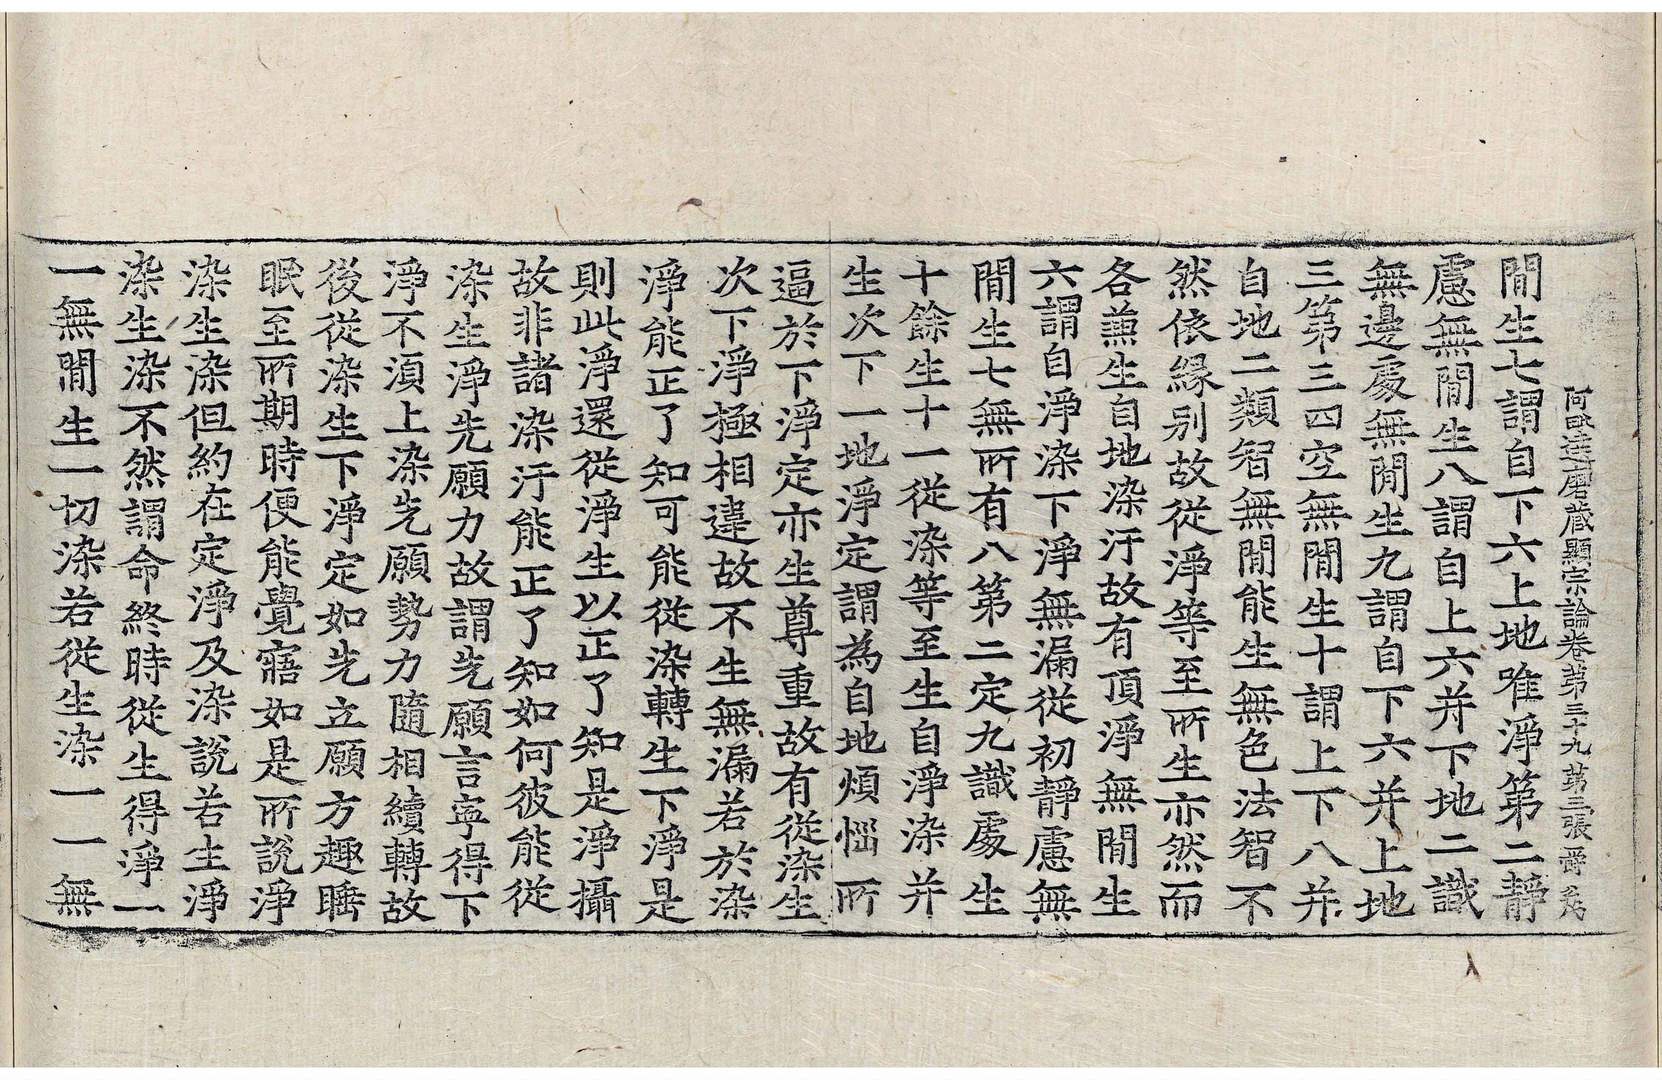 阿毗達磨藏顯宗論卷第三十九 第三張 爵
閒生七謂自下六上地唯淨第二靜
慮無閒生八謂自上六并下地二識
無邊處無閒生九謂自下六并上地
三第三四空無閒生十謂上下八并
自地二類智無閒能生無色法智不
然依緣別故從淨等至所生亦然而
各兼生自地染汙故有頂淨無閒生
六謂自淨染下淨無漏從初靜慮無
閒生七無所有八第二定九識處生
十餘生十一從染等至生自淨染并
生次下一地淨定謂為自地煩惱所
逼於下淨定亦生尊重故有從染生
次下淨極相違故不生無漏若於染
淨能正了知可能從染轉生下淨是
則此淨還從淨生以正了知是淨攝
故非諸染汙能正了知如何彼能從
染生淨先願力故謂先願言寧得下
淨不須上染先願勢力隨相續轉故
後從染生下淨定如先立願方趣睡
眠至所期時便能覺寤如是所說淨
染生染但約在定淨及染說若生淨
染生染不然謂命終時從生得淨一
一無閒生一切染若從生染一一無